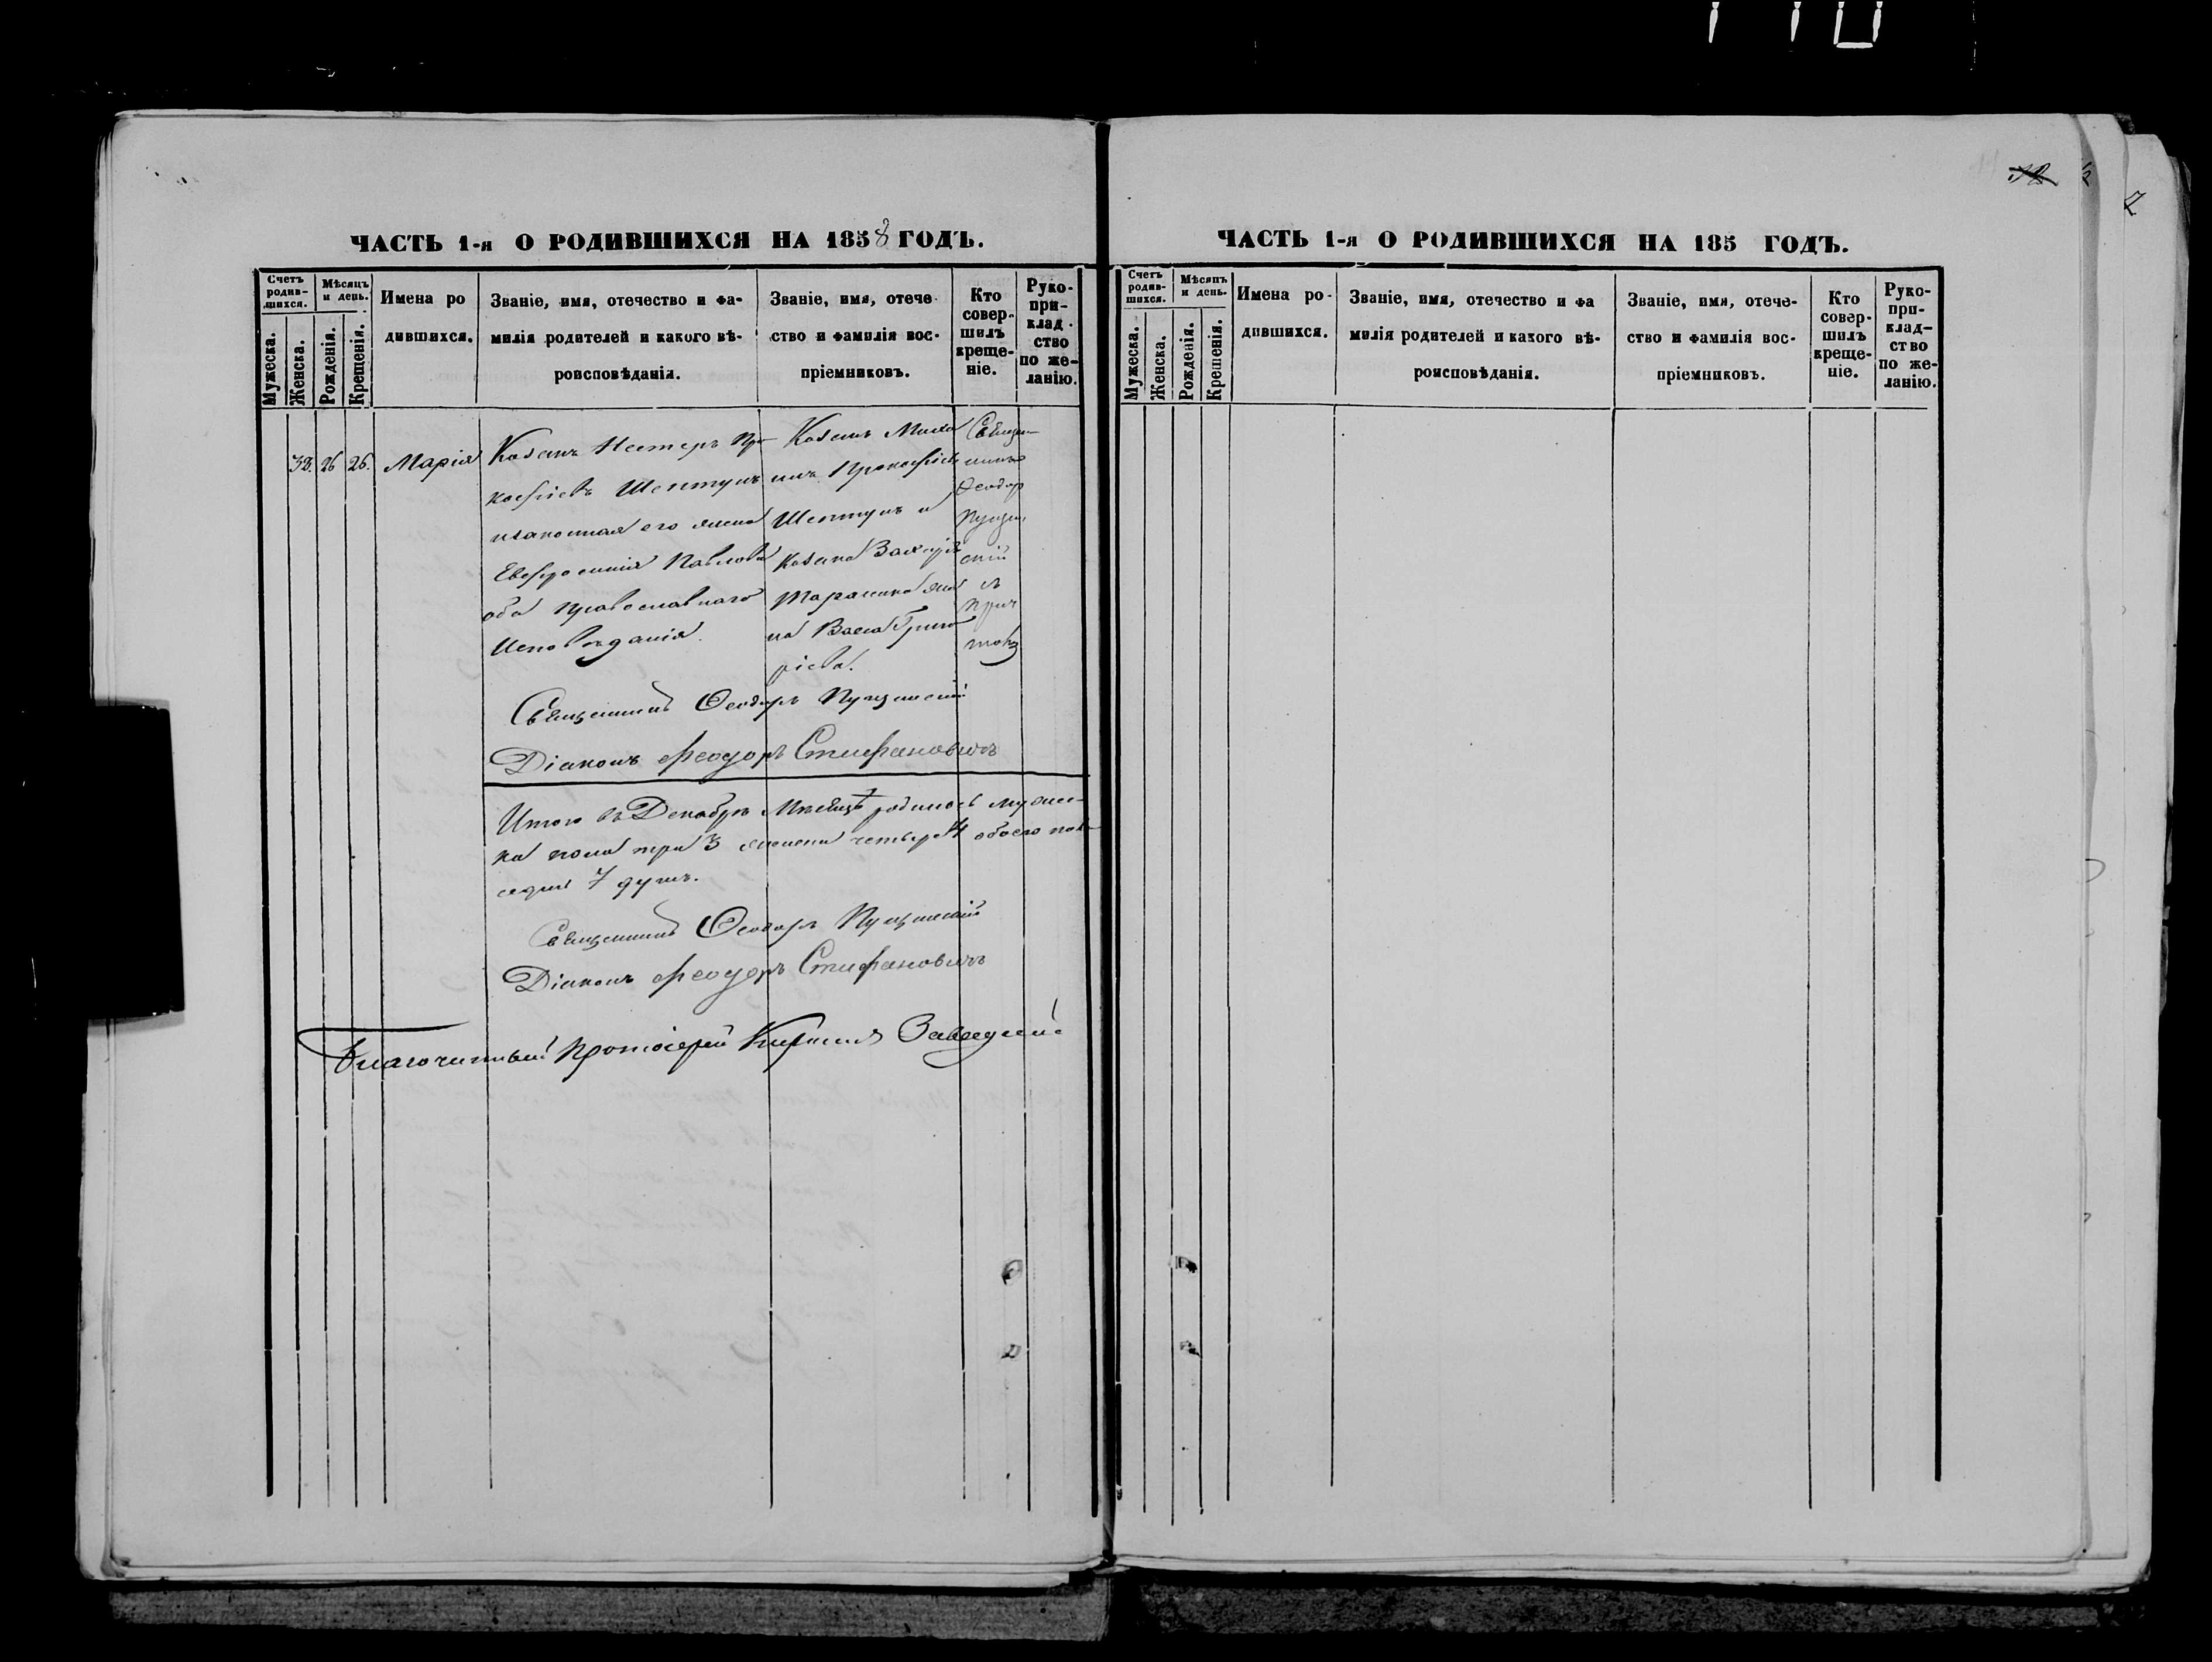 ЧАСТЬ 1-я О РОДИВШИХСЯ НА 1858 ГОДЪ.
Счетъ родив-шихся.
Мужеска.
Женска.
Мѣсяцъ и день.
Рожденія.
Крещенія.
Имена ро
дившихся.
Званіе, имя, отечество и фа-
милія родителей и какого вѣ-
роисповѣданія.
Званіе, имя, отече-
ство и фамилія вос-
пріемниковъ.
Кто
совер-
шилъ
креще-
ніе.
Руко-
при-
клад-
ство
по же-
ланію.
32. 26 26. Марія
Козакъ Нестеръ Про
кофіевъ Шептунъ
и законная его жена
Евфросинія Павлова
оба православнаго
Исповѣданія.
Козакъ Миха
илъ Прокофіевъ
Шептунъ и
козака
Тараненка же
на Васса Григо
ріева.
Священ
никъ
Феодор
Пущин
скій
съ
прич
томъ
Священникъ Феодоръ Пущинскій
Діаконъ Феодоръ Стефановичъ
Итого въ Декабрѣ Мѣсяцѣ родилось мужес-
ка пола три 3 женска четыре 4 обоего пола
седмь 7 душъ.
Священникъ Феодоръ Пущинскій
Діаконъ Феодоръ Стефановичъ
Благочинный Протоіерей Кириллъ
ЧАСТЬ 1-я О РОДИВШИХСЯ НА 185 ГОДЪ.
Счетъ родив-шихся.
Мужеска.
Женска.
Мѣсяцъ и день.
Рожденія.
Крещенія.
Имена ро-
дившихся.
Званіе, имя, отечество и фа
милія родителей и какого вѣ-
роисповѣданія.
Званіе, имя, отече-
ство и фамилія вос-
пріемниковъ.
Кто
совер-
шилъ
креще-
ніе.
Руко-
при-
клад-
ство
по же-
ланію.